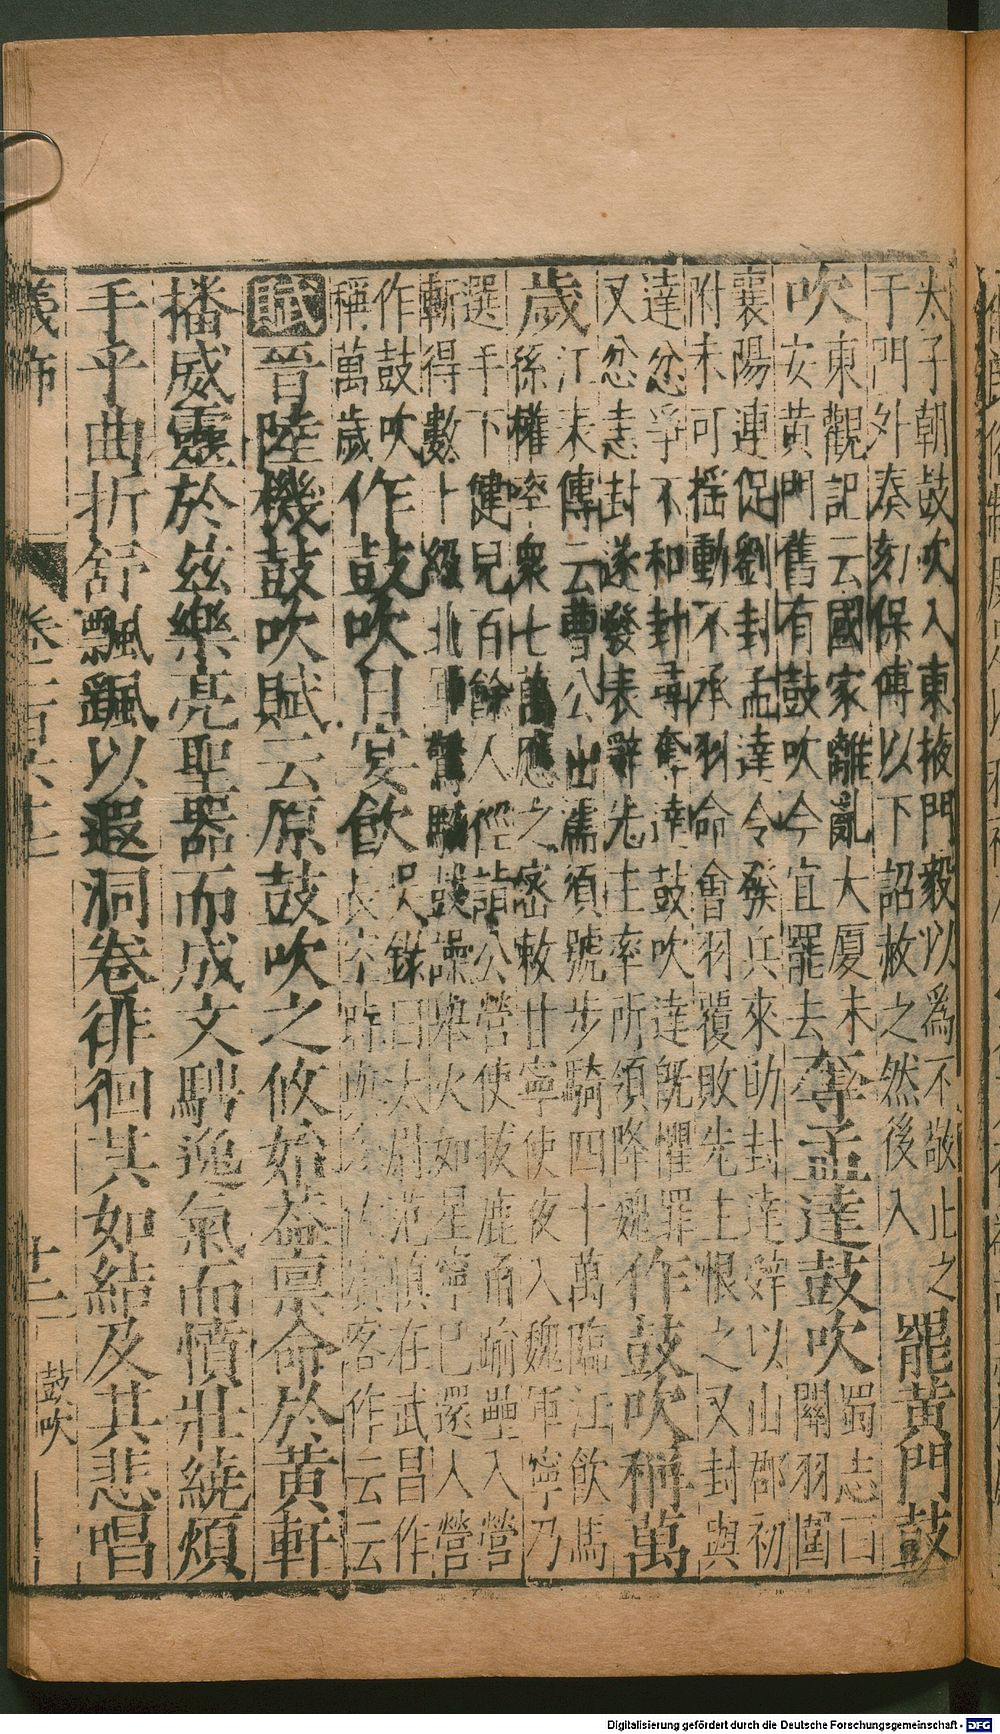 太子朝鼓吹入東掖門毅以爲不敬止之
于門外奏劾保傅以下詔赦之然後入
罷黃門鼓
吹
東觀記云國家離亂大厦未
安黃門舊有鼓吹今宜罷去
奪孟達鼓吹
蜀志曰
關羽圍
襄陽連促劉封孟達令發兵來助封達辭以山郡初
附未可搖動不承羽命會羽覆敗先主恨之又封與
達忿爭不和封尋奪達鼓吹達旣懼罪
又忿恚封遂發表辭先主率所領降魏
作鼓吹稱萬
歲
江表傳云曹公出濡須號步騎四十萬臨江飮馬
孫權率衆七萬應之密敕甘寧使夜入魏軍寧乃
選手下健兒百餘人徑詣公營使拔鹿角踰壘入營
斬得數十級北軍驚駭鼓譟舉火如星寧已還入營
作鼓吹
稱萬歲
作鼓吹日宴飮
吳錄曰太尉范愼在武昌作
長 客作云云
賦晉陸機鼓吹賦云原鼓吹之攸始蓋禀命於黃軒
播威靈於茲樂亮聖器而成文騁逸氣而憤壯繞煩
手乎曲折舒飄颻以遐洞卷徘徊其如結及其悲唱
卷一百三十 十二 鼓吹
Digitalisierung gefördert durch die Deutsche Forschungsgemeinschaft - DFG